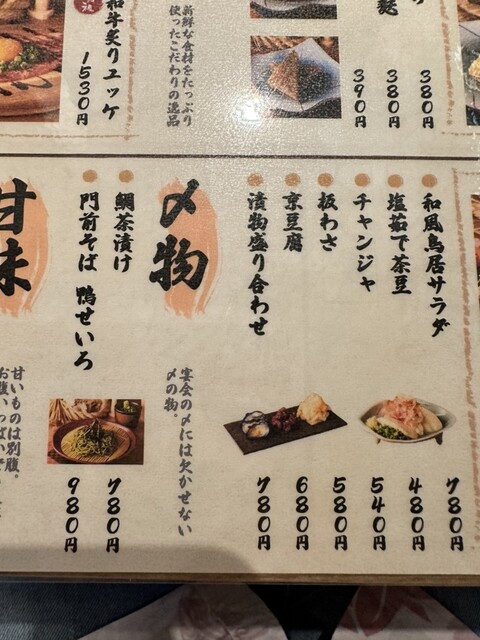 380円
380円
390円
新鮮な食材をたっぷり
使ったこだわりの逸品
和牛炙りユッケ
1530円
和風鳥居サラダ 780円
塩茹で茶豆 480円
チャンジャ 540円
板わさ 580円
京豆腐 680円
漬物盛り合わせ 780円
〆物
宴会の〆には欠かせない
〆の物。
鯛茶漬け 780円
門前そば 鴨せいろ 980円
甘味
甘いものは別腹。